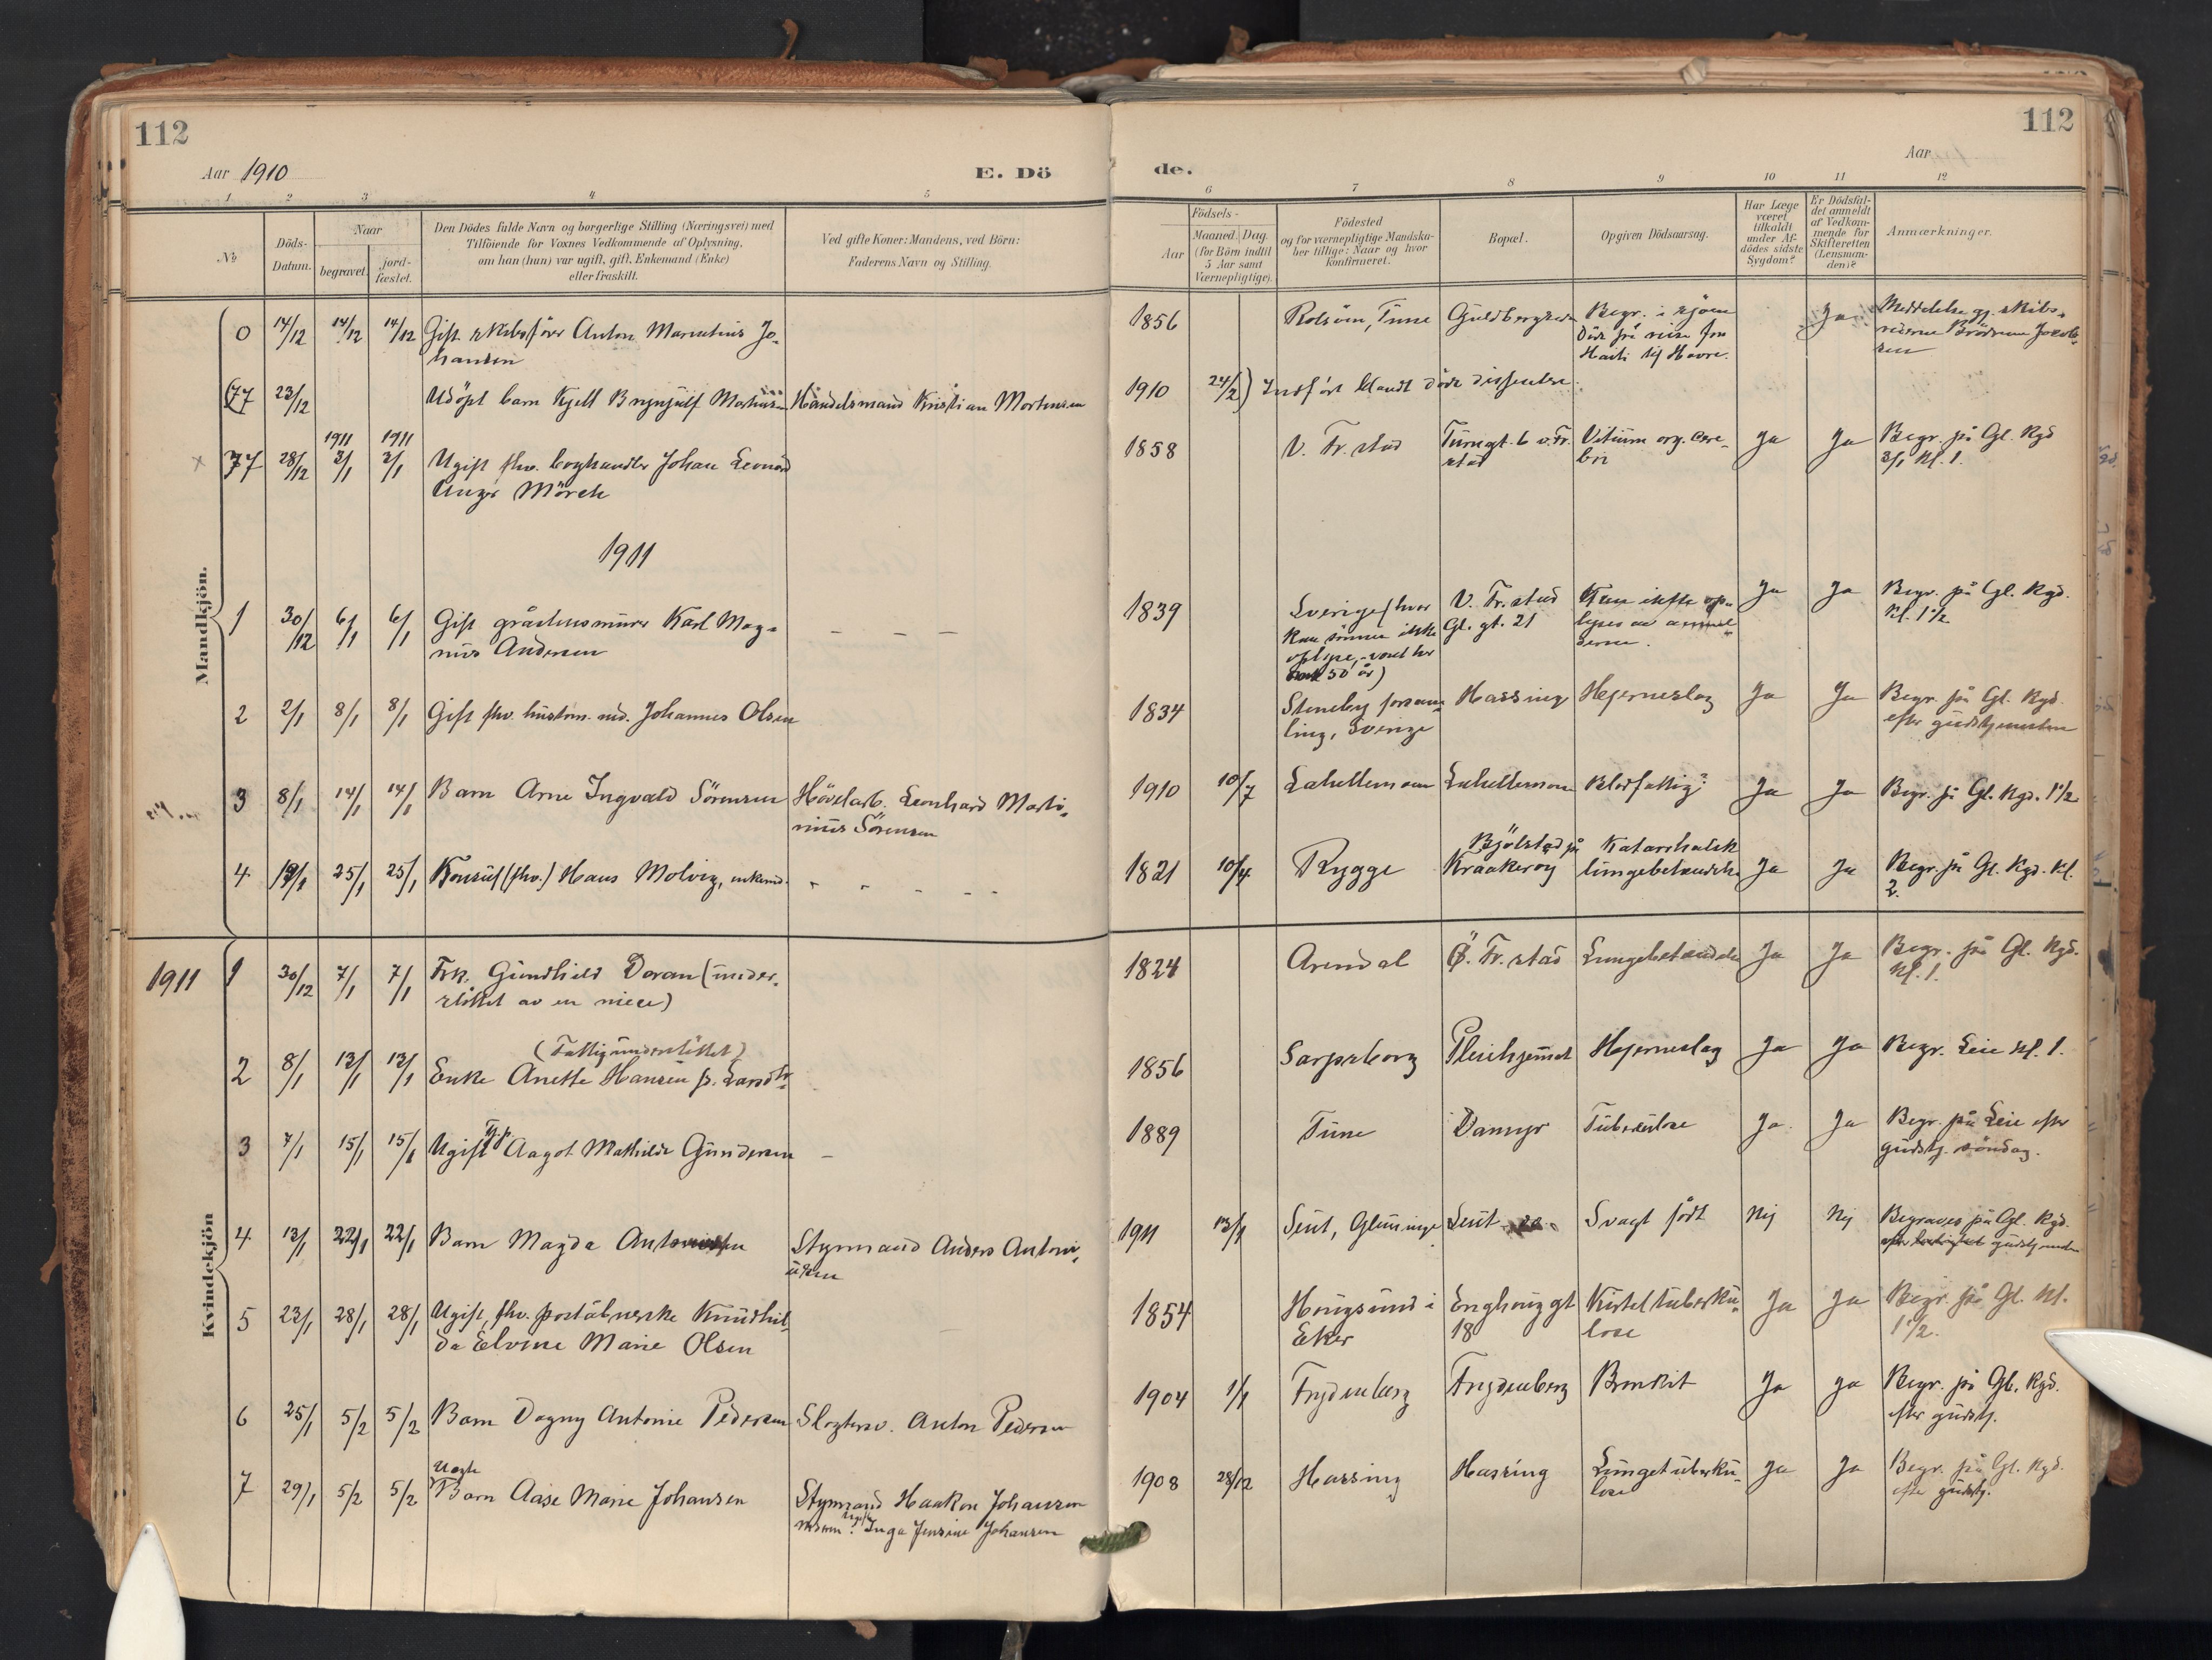 112
112
Aar 1910
E. Dö
de.
Aar
1 2 3 4 5
6 7 8 9 10 11 12
№
Döds-
Datum.
Naar
begravet.
jord-
fæstet.
Den Dödes fulde Navn og borgerlige Stilling (Næringsvei) med
Tilföiende for Voxnes Vedkommende af Oplysning,
om han (hun) var ugift, gift, Enkemand (Enke)
eller fraskilt.
Ved gifte Koner: Mandens, ved Börn:
Faderens Navn og Stilling.
Födsels-
Aar
Maaned. Dag.
(for Börn indtil
5 Aar samt
Værnepligtige).
Födested
og for værnepligtige Mandska-
ber tillige: Naar og hvor
konfirmeret.
Bopæl.
Opgiven Dödsaarsag.
Har Læge
været
tilkaldt
under Af-
dödes sidste
Sygdom?
Er Dödsfal-
det anmeldt
af Vedkom-
mende for
Skifteretten
(Lensman-
den)?
Anmærkninger.
Mandkjön.
0 14/12 14/12 14/12 Gift skibsförer Anton Marentius Jo-
hansen
1856 Rolsöen, Tune Guldbergseden Begr. i sjöen
Döde på reise fra
Haiti til Havre.
Ja Meddelelse gj. skibs-
rederne Brödrene Jacob-
sen
(77 23/12 Udöpt barn Kjell Brynjulf Mortensen Handelsmand Kristian Mortensen
1910 24/2) Indfört blandt döde dissentere.
77 28/12 1911 3/1 1911 3/1 Ugift fhv. boghandler Johan Leonard
Unger Mörch
1858 V. Fr.stad Turngt. 6 v. Fr.
stad
Vitium org. cere-
bri
Ja Ja Begr. på Gl. Kgd
3/1 kl. 1.
1911
1 30/12 6/1 6/1 Gift gråstensmurer Karl Mag-
nus Andersen
1839 Sverige (hvor
kan sönnen ikke
oplyse, - været her
50 år)
V. Fr.stad
Gl. gt. 21
Kan ikke op-
lyses av anmel-
derne.
Ja Ja Begr. på Gl. Kgd.
kl. 1 1/2
2 2/1 8/1 8/1 Gift fhv. hustom. md. Johannes Olsen
1834 Steneby forsam-
ling, Sverige
Hassing Hjerneslag Ja Ja Begr. på Gl. Kgd.
efter gudstjenesten
3 8/1 14/1 14/1 Barn Arne Ingvald Sörensen Hövelarb. Leonhard Marti-
nius Sörensen
1910 10/7 Lahellemoen Lahellemoen Blodfattig? Ja Ja Begr. på Gl. Kgd. 1 1/2
4 19/1 25/1 25/1 Konsul (fhv.) Hans Molvig, enkemd.
1821 10/4 Rygge Bjölstad på
Kraakeröy
Katarrhalsk
lungebetændelse
Ja Ja Begr. på Gl. Kgd. Kl.
2.
Kvindekjön
1911 1 30/12 7/1 7/1 Frk. Gundhild Doran (under-
stöttet av en niece)
1824 Arendal Ö. Fr.stad Lungebetændelse Ja Ja Begr. på Gl. Kgd.
Kl. 1.
2 8/1 13/1 13/1 (Fattigunderstöttet)
Enke Anette Hansen
1856 Sarpsborg Pleiehjemmet Hjerneslag Ja Ja Begr. Leie kl. 1.
3 7/1 15/1 15/1 Ugift Aagot Mathilde Gundersen
1889 Tune Dammyr Tuberkulose Ja Ja Begr. på Leie efter
gudstj. söndag.
4 13/1 22/1 22/1 Barn Magda Antonisen Styrmand Anders Antoni-
usen
1911 13/1 Seut, Glemminge Seut Svagt födt Nej Nej Begraves på Gl. Kgd.
gudstjenesten
5 23/1 28/1 28/1 Ugift, fhv. poståbnerske Knudhil-
da Elvine Marie Olsen
1854 Hougsund i
Eker
Enghouggt
18
Kirteltuberku-
lose
Ja Ja Begr. på Gl. Kl.
1 1/2.
6 25/1 5/2 5/2 Barn Dagny Antonie Pedersen Anton Pedersen
1904 1/1 Frydenberg Frydenberg Bronkit Ja Ja Begr. på Gl. Kgd.
efter gudstj.
7 29/1 5/2 5/2 Uegte
Barn Aase Marie Johansen Styrmand Haakon Johansen
moren: Ugift Inga Jensine Johansen
1908 28/12 Hassing Hassing Lungetuberku-
lose
Ja Ja Begr. på Gl. Kgd.
efter gudstj.